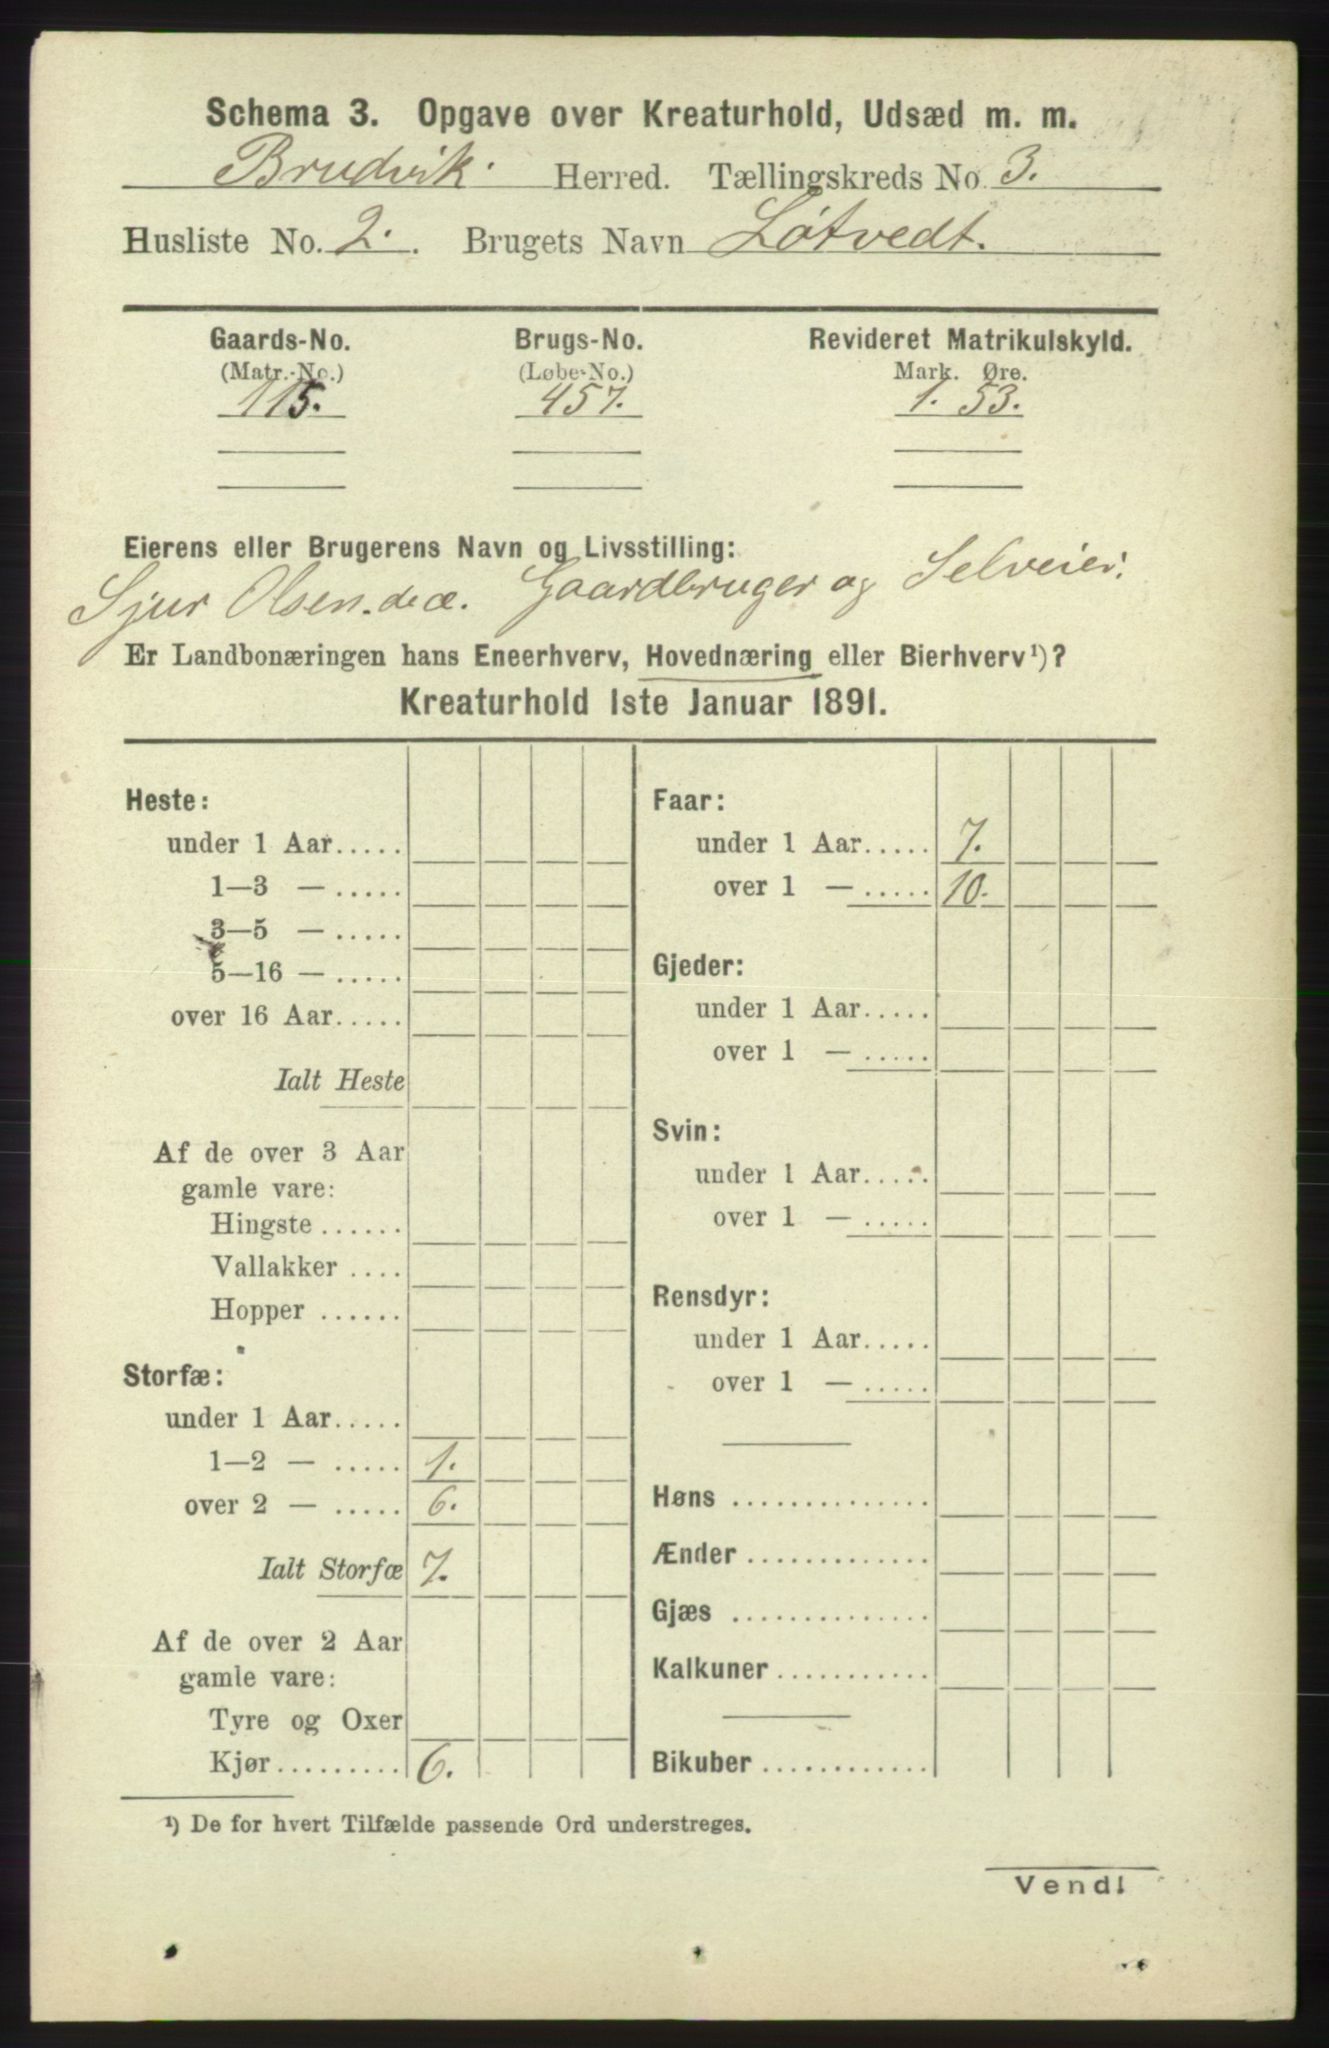 Schema 3. Opgave over Kreaturhold, Udsæd m. m.
Brudvik. Herred. Tællingskreds No 3.
Husliste No. 2. . Brugets Navn Løtvedt.
Gaards-No. Brugs-No. Revideret Matrikulskyld.
(Matr.-No.) (Løbe-No.) Mark. Øre.
115. 457. 1. 53.
Eierens eller Brugerens Navn og Livsstilling:
Sjur Olsen. Gaardbruger og Selveier.
Er Landbonæringen hans Eneerhverv, Hovednæring eller Bierhverv¹)?
Kreaturhold 1ste Januar 1891.
Heste:
under 1 Aar.....
1—3 — .....
3—5 — .....
5—16 — .....
over 16 Aar.....
Ialt Heste
Af de over 3 Aar
gamle vare:
Hingste ......
Vallakker ....
Hopper ......
Storfæ:
under 1 Aar.....
1—2 — ..... 1.
over 2 — ..... 6.
Ialt Storfæ 7.
Af de over 2 Aar
gamle vare:
Tyre og Oxer
Kjør......... 6.
Faar:
under 1 Aar..... 7.
over 1 — ..... 10.
Gjeder:
under 1 Aar.....
over 1 — .....
Svin:
under 1 Aar.....
over 1 — .....
Rensdyr:
under 1 Aar.....
over 1 — .....
Høns ..............
Ænder .............
Gjæs ..............
Kalkuner ...........
Bikuber ............
¹) De for hvert Tilfælde passende Ord understreges.
Vend!